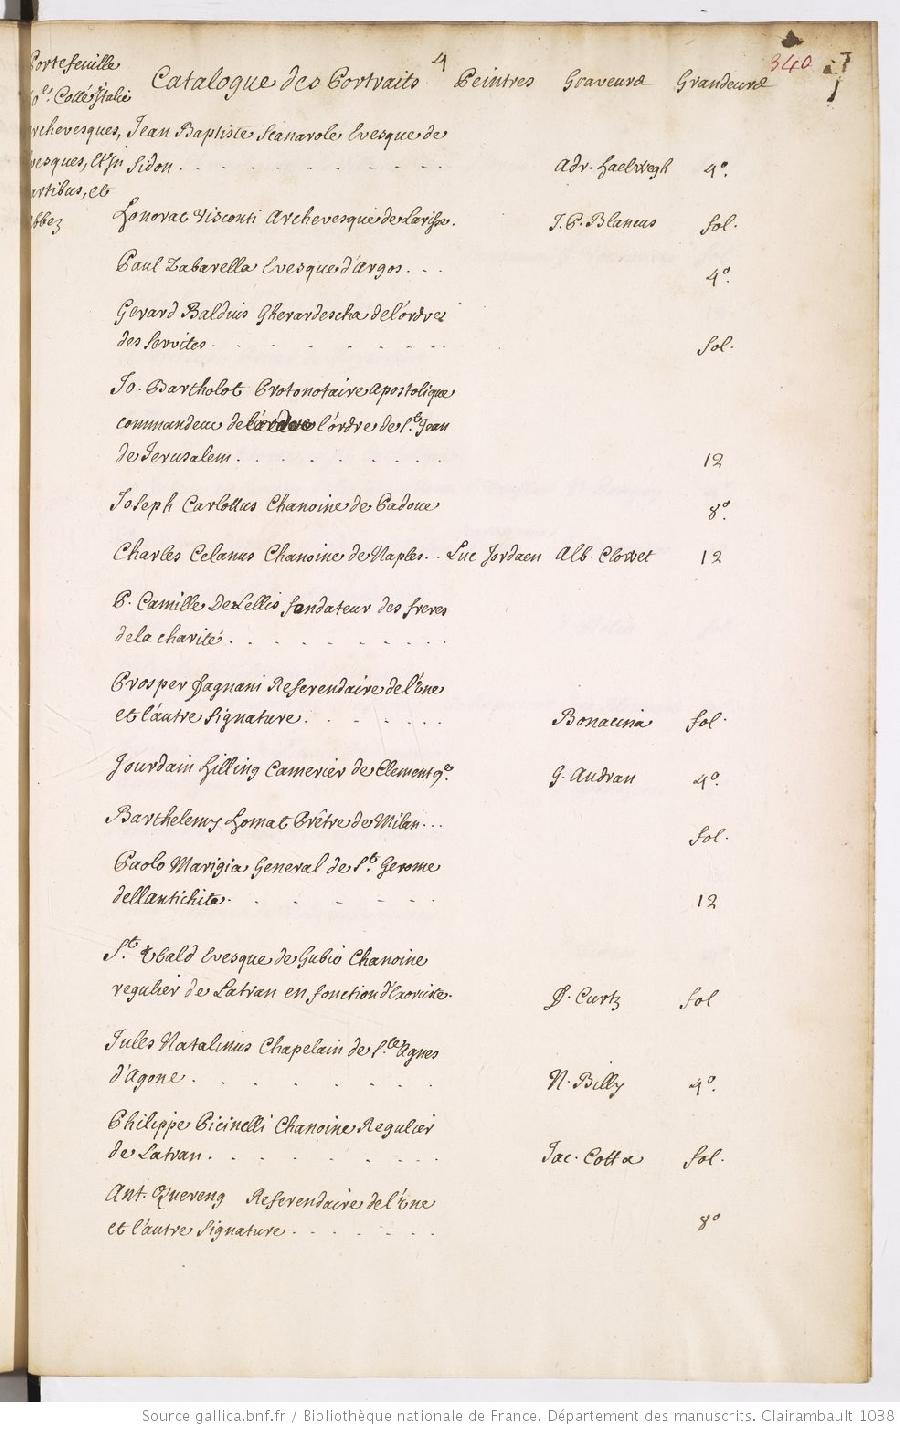 340
Portefeuille
Catalogue des Portraits 4 Peintres Graveurs Grandeurs
Cotté Italie
Archevesques, Jean Baptiste Scanarole Evesque de
vesques, Sidon. Adv. Haelwegh 4°.
artibus, et
Abbez Honorat Visconti Archevesque de Larisse. J. P. Blancus fol.
Paul Zabarella Evesque d'Argos. 4°.
Gerard Balduis Gherardescha de l'ordre
des Servites. fol.
Jo. Bartholot Protonotaire apostolique
commandeur de l'ordre de St. Jean
de Jerusalem. 12
Joseph Carlottus Chanoine de Padoue 8°.
Charles Celanus Chanoine de Naples. Luc Jordaen Alb Clowet 12
P. Camille De Lellis fondateur des freres
de la charité.
Prosper Fagnani Referendaire de l'une
et l'autre Signature. Bonacina fol.
Jourdain Hilling Camerier de Clement 9e. G. Audran 4°.
Barthelemy Homat Prêtre de Milan... fol.
Paolo Marigia General de St. Gerome
dellantichita. 12
St. Ubald Evesque de Gubio Chanoine
regulier de Latran en fonction d'Exorciste. D. Curtz fol
Jules Natalinus Chapelain de Ste Agnes
d'Agone. N. Billy 4°.
Philippe Picinelli Chanoine Regulier
de Latran. Jac. Cotta fol.
Ant. Quereng Referendaire de l'une
et l'autre Signature. 8°
Source gallica.bnf.fr / Bibliothèque nationale de France. Département des manuscrits. Clairambault 1038